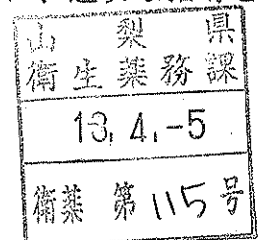 山梨県
衛生薬務課
13.4.-5
衛薬 第115号